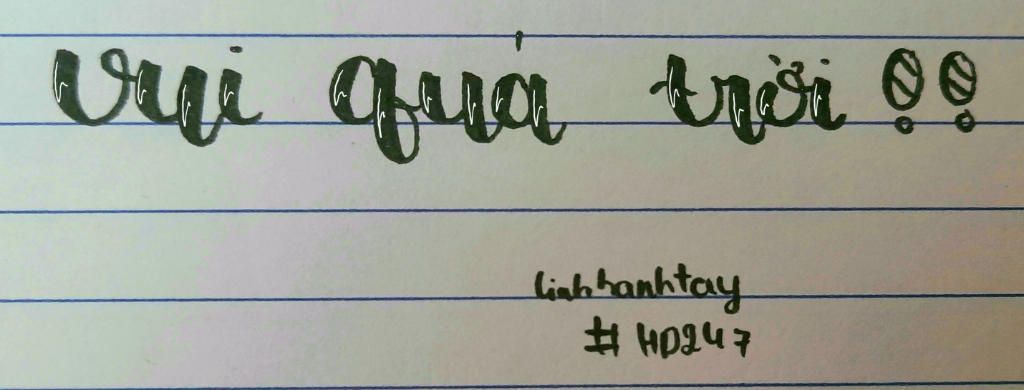 vui quá trời !!
linhhanhtay
# HD247